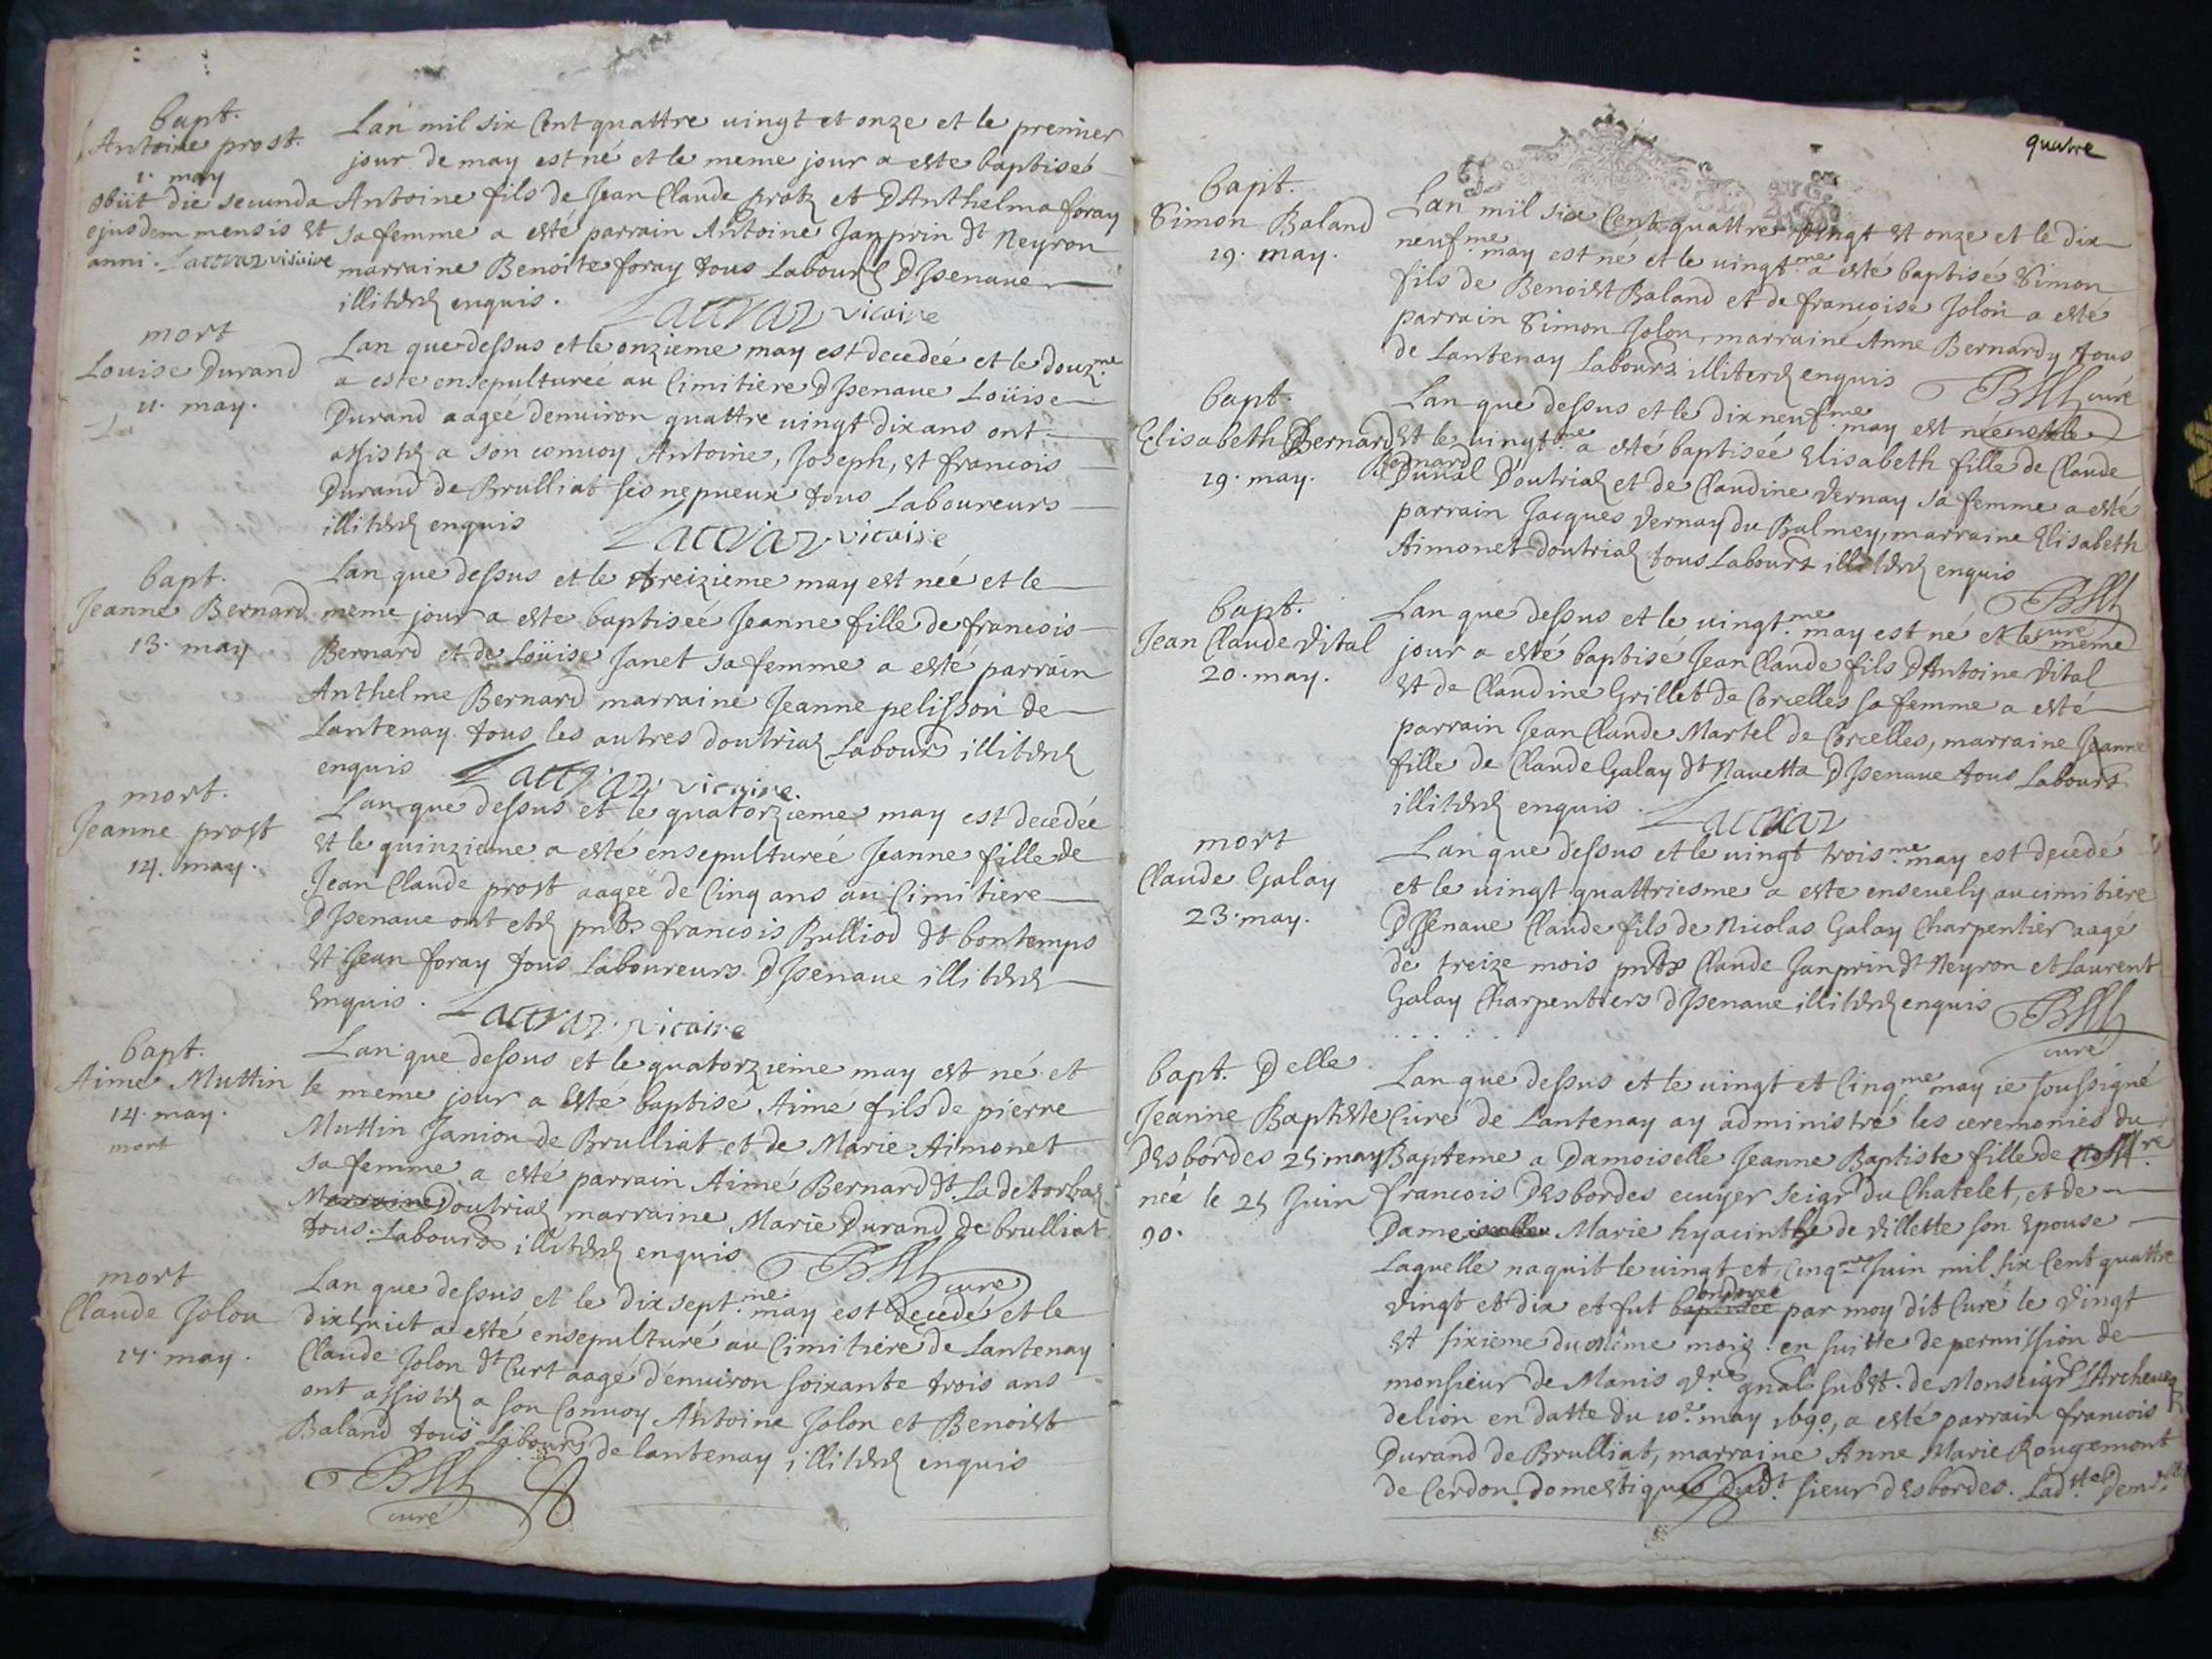 bapt.
Antoine prost.
1. may
obiit die secunda
ejusdem mensis et
anni. Lacroaz vicaire
Lan mil six Cent quattre vingt et onze et le premier
jour de may est né et le meme jour a este baptisé
Antoine fils de Jean Claude prost et D'Anthelma foray
sa femme a esté parrain Antoine Janprin dt Neyron
marraine Benoite foray tous Labours D'Jsenaue
illiterés enquis. vicaire
mort
Louise Durand
11. may.
Lan que dessus et le onzieme may est decedeé et le douz.me
a este ensepultureé au Cimitiere D'Jsenaue Loüise
Durand aageé denuiron quattre vingt dix ans ont
assistés a son conuoy Antoine, Joseph, et francois
Durand de Brulliat ses nepueux tous Laboureurs
illiterés enquis vicaire
bapt.
Jeanne Bernard
13. may
Lan que dessus et le treizieme may est neé et le
meme jour a este baptiseé Jeanne fille de francois
Bernard et de Loüise Janet sa femme a esté parrain
Anthelme Bernard marraine Jeanne pelisson de
Lantenay tous les autres doutriaz Labours illiterés
enquis vicaire.
mort.
Jeanne prost
14. may.
Lan que dessus et le quatorzieme may est decedée
et le quinzieme a esté ensepultureé Jeanne fille de
Jean Claude prost aageé de Cinq ans au Cimitiere
D'Jsenaue ont estés pnts francois Bulliod dt bontemps
et Jean foray tous Laboureurs D'Jsenaue illiterés
enquis. vicaire
bapt.
Aimé Muttin
14. may.
mort
Lan que dessus et le quatorzieme may est né et
le meme jour a esté baptise Aime fils de pierre
Muttin Janion de Brulliat et de Marie Aimonet
sa femme a esté parrain Aimé Bernard dt
Marraine Doutriaz marraine Marie Durand de brulliat
tous Labours illiterés enquis
curé
mort
Claude Jolon
17. may.
Lan que dessus et le dix sept.me may est decedé et le
dixhuict a esté ensepulturé au Cimitiere de Lantenay
Claude Jolon dt Curt aagé d'énuiron soixante trois ans
ont assistés a son Conuoy Antoine Jolon et Benoist
Baland tous Labours de lantenay illiterés enquis
curé
quatre
bapt.
Simon Baland
19. may.
Lan mil six Cent quattre vingt et onze et le dix
neuf.me may est né et le vingt.me a esté baptisé Simon
fils de Benoist Baland et de francoise Jolon a esté
parrain Simon Jolon, marraine Anne Bernardy tous
de Lantenay Labours illiterés enquis
curé
bapt.
Elisabeth Bernard
19. may.
Lan que dessus et le dix neuf.me may est née
et le vingt.me a esté baptiseé Elisabeth fille de Claude
Bernard
Duual D'outriaz et de Claudine Vernay sa femme a esté
parrain Jacques Vernay du Balmey, marraine Elisabeth
Aimonet doutriaz tous Labours illiterés enquis
curé
bapt.
Jean Claude Vital
20. may.
Lan que dessus et le vingt.me may est né et le méme
jour a esté baptisé Jean Claude fils D'Antoine Vital
et de Claudine Grillet de Corcelles sa femme a esté
parrain Jean Claude Martel de Corcelles, marraine Jeanne
fille de Claude Galay dt Nauetta D'Jsenaue tous Labours
illiterés enquis.
mort
Claude Galay
23. may.
Lan que dessus et le vingt trois.me may est decedé
et le vingt quattriesme a este enseuely au cimitiere
D'Jsenaue Claude fils de Nicolas Galay Charpentier aagé
de treize mois pnts Claude Janprin dt Neyron et Laurent
Galay Charpentiers d'Jsenaue illiterés enquis
curé
bapt. Delle
Jeanne Baptiste
Desbordes 25 may
née le 25 Juin
90.
Lan que dessus et le vingt et Cinq.me may ie soussigné
Curé de Lantenay ay administré les ceremonies du
Bapteme a Damoiselle Jeanne Baptiste fille de
francois Desbordes ecuyer seigr du Chatelet, et de
Dame Marie hyacinthe de Villette son Epouse
Laquelle naquit le vingt et Cinq.me Juin mil six Cent quattre
ondoyeé
vingt et dix et fut baptiseé par moy dit Curé le vingt
et sixieme du même mois en suitte de permission de
monsieur de Manis vre gnal subst. de Monseigr L'Archeueq
de lion en datte du 10e may 1690, a esté parrain francois
Durand de Brulliat, marraine Anne Marie Rougemont
de Cerdon domestiques dudt sieur desbordes. Ladtte